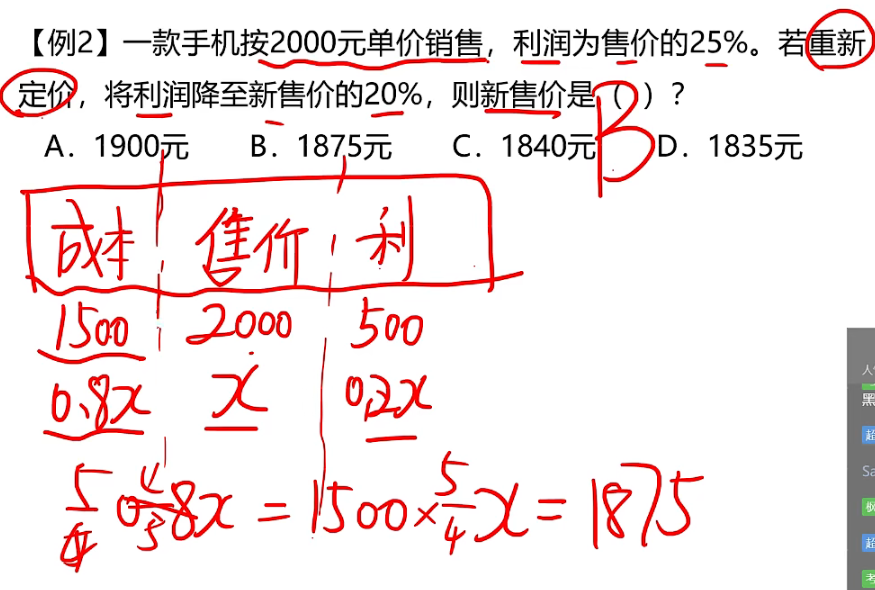 【例2】一款手机按2000元单价销售，利润为售价的25%。若重新
定价，将利润降至新售价的20%，则新售价是（ ）？
B
A．1900元 B．1875元 C．1840元 D．1835元
成本 售价 利
1500 2000 500
0.8x x 0.2x
5/4 0.8x 4/5 = 1500×5/4 x = 1875
人
黑
超
Sa
枫
超
考